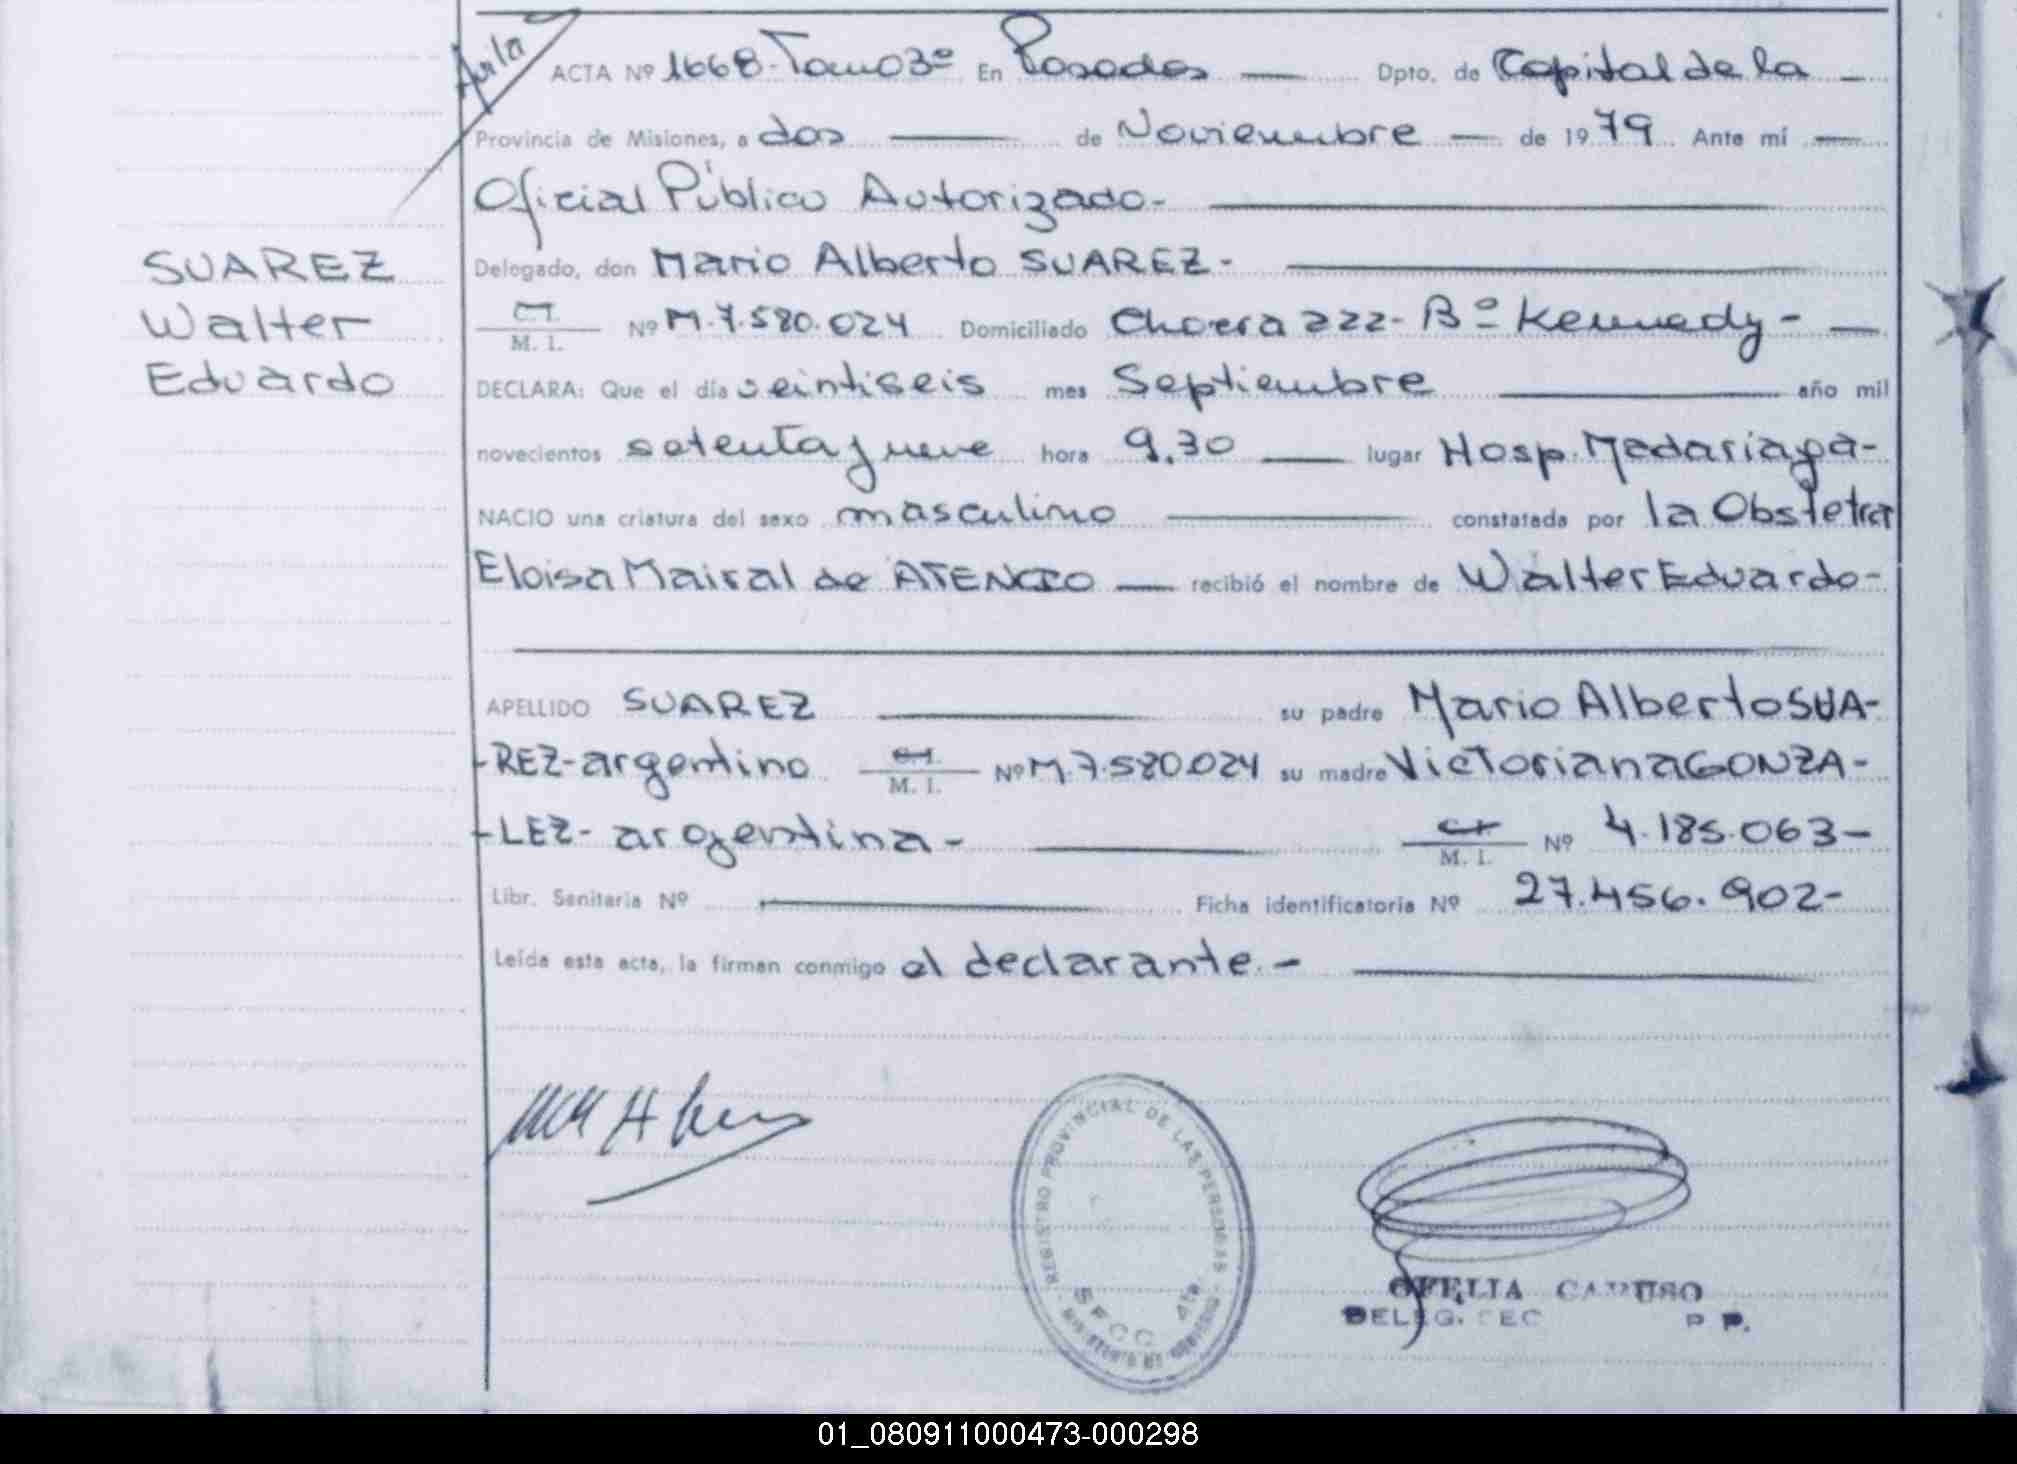 Avila
ACTA Nº 1668-Tomo 3º En Posadas — Dpto. de Capital de la —
Provincia de Misiones, a dos — de Noviembre — de 1979 Ante mí —
Oficial Público Autorizado-
SUAREZ
Delegado, don Mario Alberto SUAREZ-
Walter
C.I.
M. I. Nº M.7.580.024 Domiciliado 222-Bº Kennedy-
Eduardo
DECLARA: Que el día veintiseis mes Septiembre — año mil
novecientos setenta y nueve hora 9.30 — lugar Hosp. Madariaga-
NACIO una criatura del sexo masculino — constatada por la Obstetra
Eloisa Mairal de ATENCIO — recibió el nombre de Walter Eduardo-
APELLIDO SUAREZ — su padre Mario Alberto SUA-
-REZ-argentino C.I.
M. I. Nº M.7.580.024 su madre Victoriana GONZA-
-LEZ- argentina- — C.I.
M. I. Nº 4.185.063-
Libr. Sanitaria Nº — Ficha identificatoria Nº 27.456.902-
Leída esta acta, la firman conmigo el declarante.-
REGISTRO PROVINCIAL DE LAS PERSONAS
MINISTERIO DE GOBIERNO
OFELIA CARUSO
DELEG. SEC P P.
01_080911000473-000298